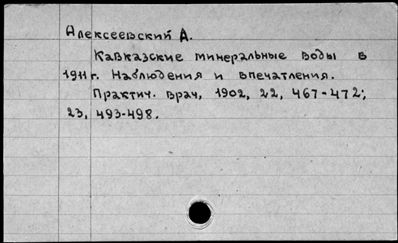 Алексеевский А.
Кавказские минеральные воды в
1911 г. Наблюдения и впечатления.
Практич. врач, 1902, 22, 467-472;
23, 493-498.